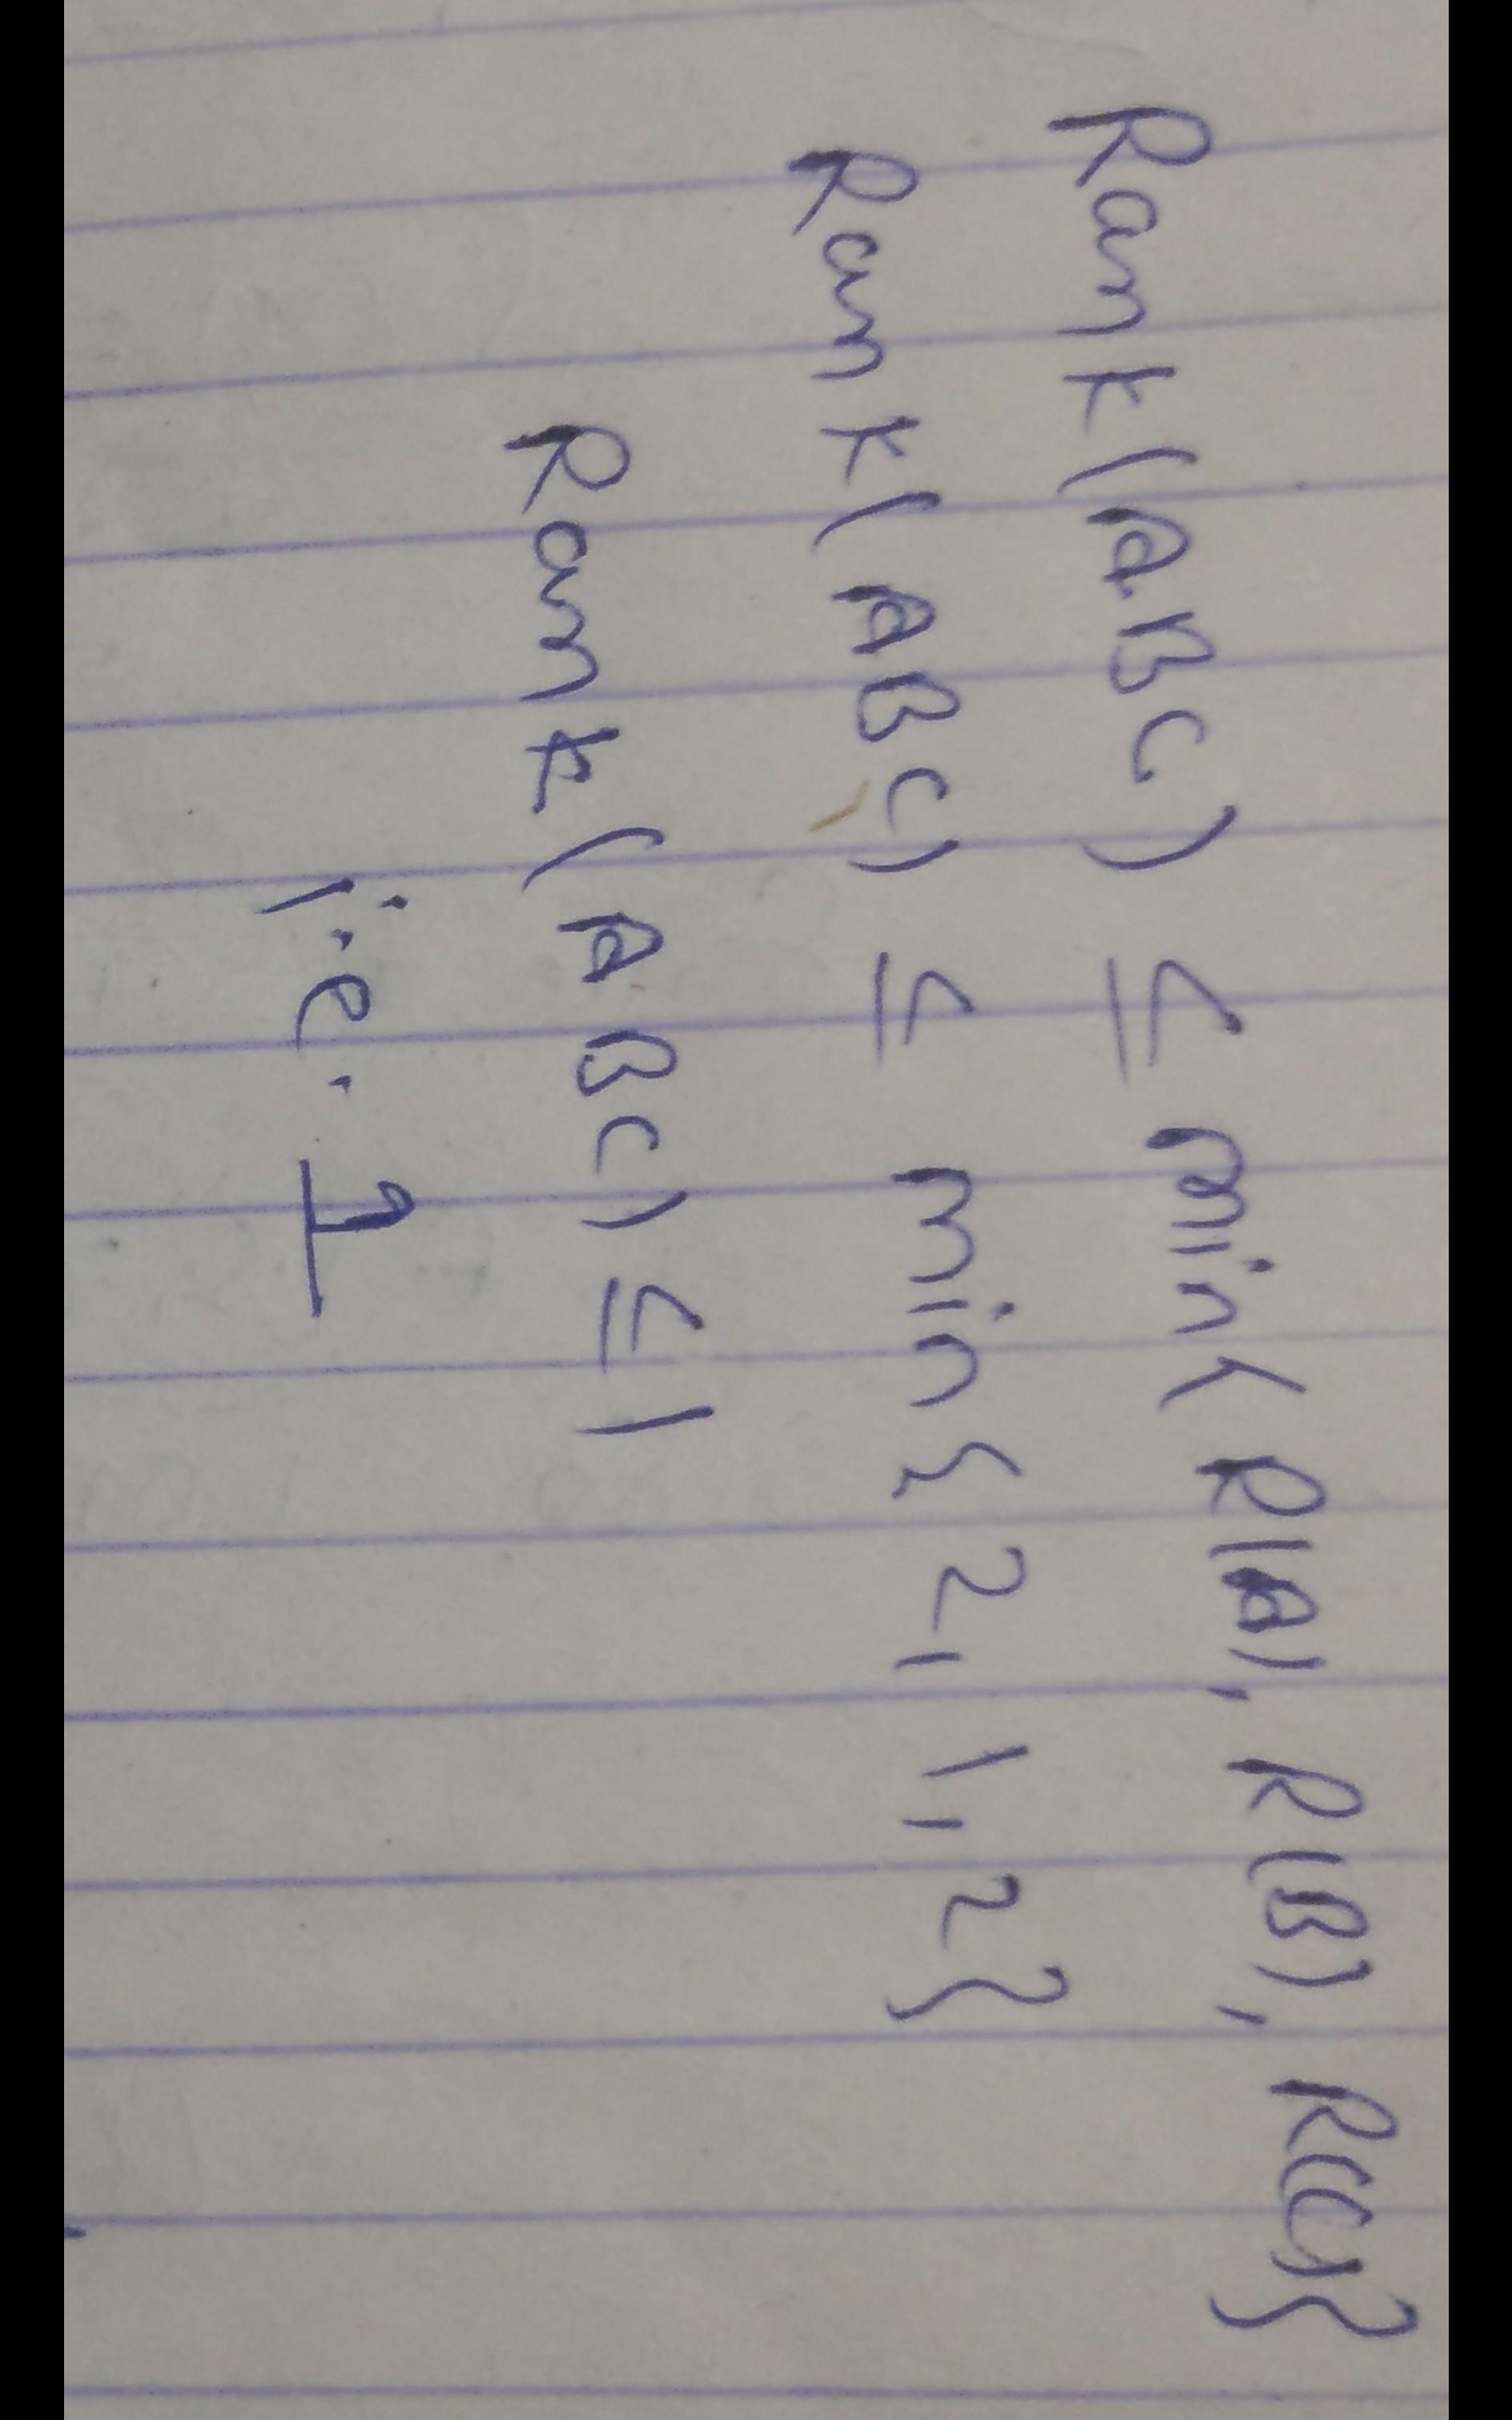 Rank(ABC) ≤ min{R(A), R(B), R(C)}
Rank(ABC) ≤ min{2, 1, 2}
Rank(ABC) ≤ 1
i.e. 1